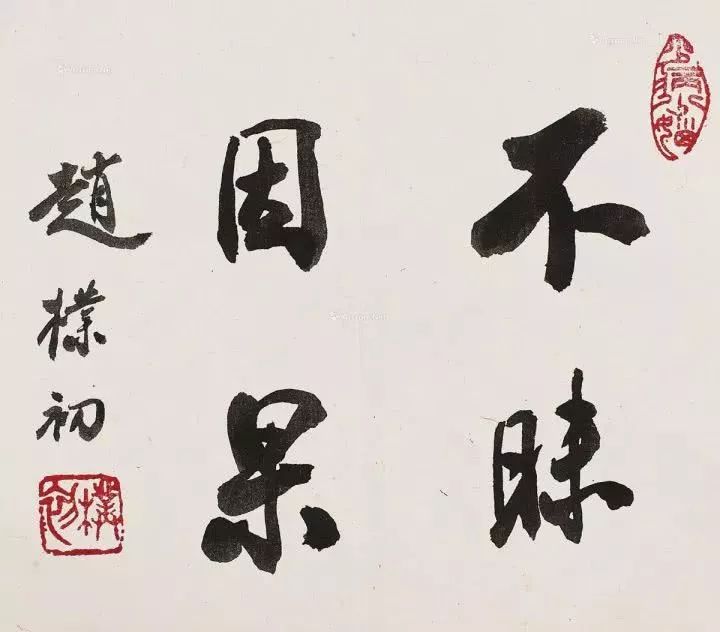 不昧
因果
趙樸初
樸初